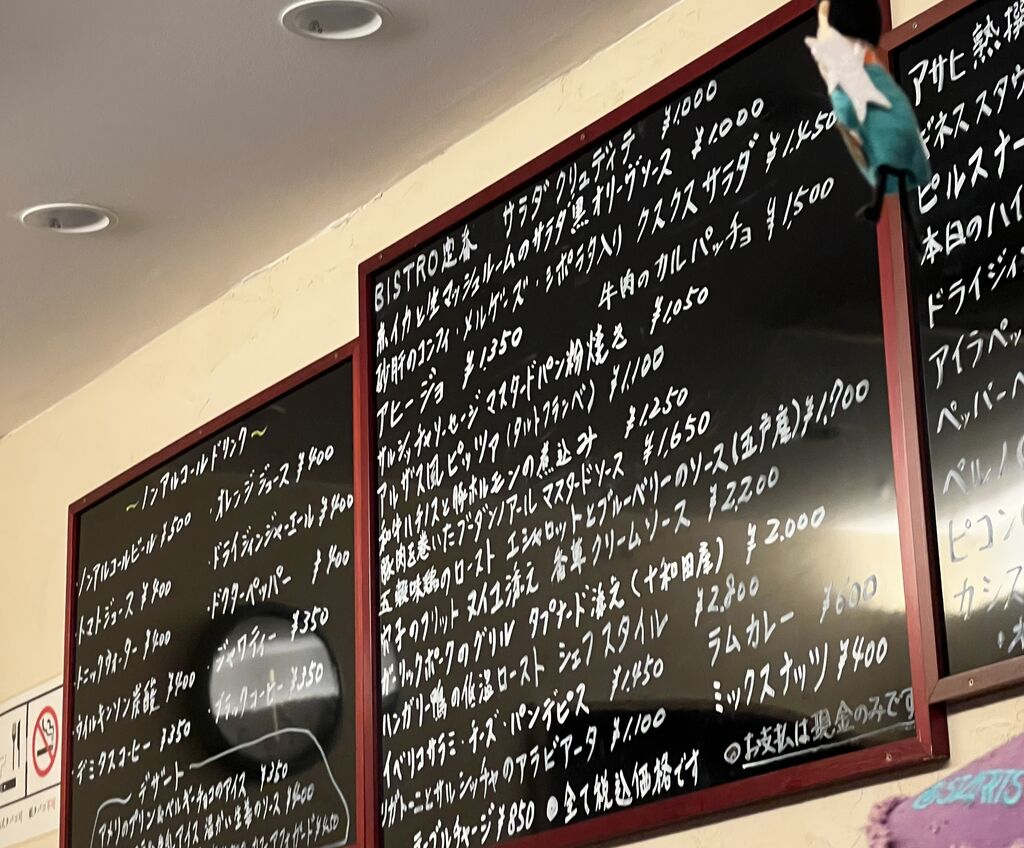 ～ノンアルコールドリンク～
・ノンアルコールビール ¥500
・オレンジジュース ¥400
・トマトジュース ¥400
・ドライジンジャーエール ¥400
・トニックウォーター ¥400
・ドクターペッパー ¥400
・ウィルキンソン炭酸 ¥400
・ジャワティー ¥350
・デミタスコーヒー ¥350
・ブラックコーヒー ¥350
～デザート～
アメリのプリン
ベルギーチョコのアイス ¥350
BISTRO定春
サラダクリュディテ ¥1.000
赤イカと生マッシュルームのサラダ黒オリーヴソース ¥1.000
砂肝のコンフィ・メルゲーズ・シポラタ入り クスクスサラダ ¥1.450
アヒージョ ¥1.350
牛肉のカルパッチョ ¥1.500
サルシッチャソーセージ マスタードパン粉焼き ¥1.050
アルザス風ピッツァ(タルトフランベ) ¥1.100
和牛ハチノスと豚ホルモンの煮込み ¥1.250
豚肉を巻いたブーダンノアール マスタードソース ¥1.650
五穀味鶏のロースト エシャロットとブルーベリーのソース(五戸産) ¥1.700
のフリット ヌイユ添え 香草クリームソース ¥2.200
ガーリックポークのグリル タプナード添え(十和田産) ¥2.000
ハンガリー鴨の低温ロースト シェフスタイル ¥2.800
イベリコサラミ・チーズ・パンデピス ¥1.450
ラムカレー ¥600
リガトーニとサルシッチャのアラビアータ ¥1.100
ミックスナッツ ¥400
テーブルチャージ ¥850
●全て税込価格です
お支払は現金のみです
アサヒ 熟撰
ピルスナー
本日のハイ
ドライジィン
アイラペッ
ペッパーハ
ペルノ
ピコン
カシス